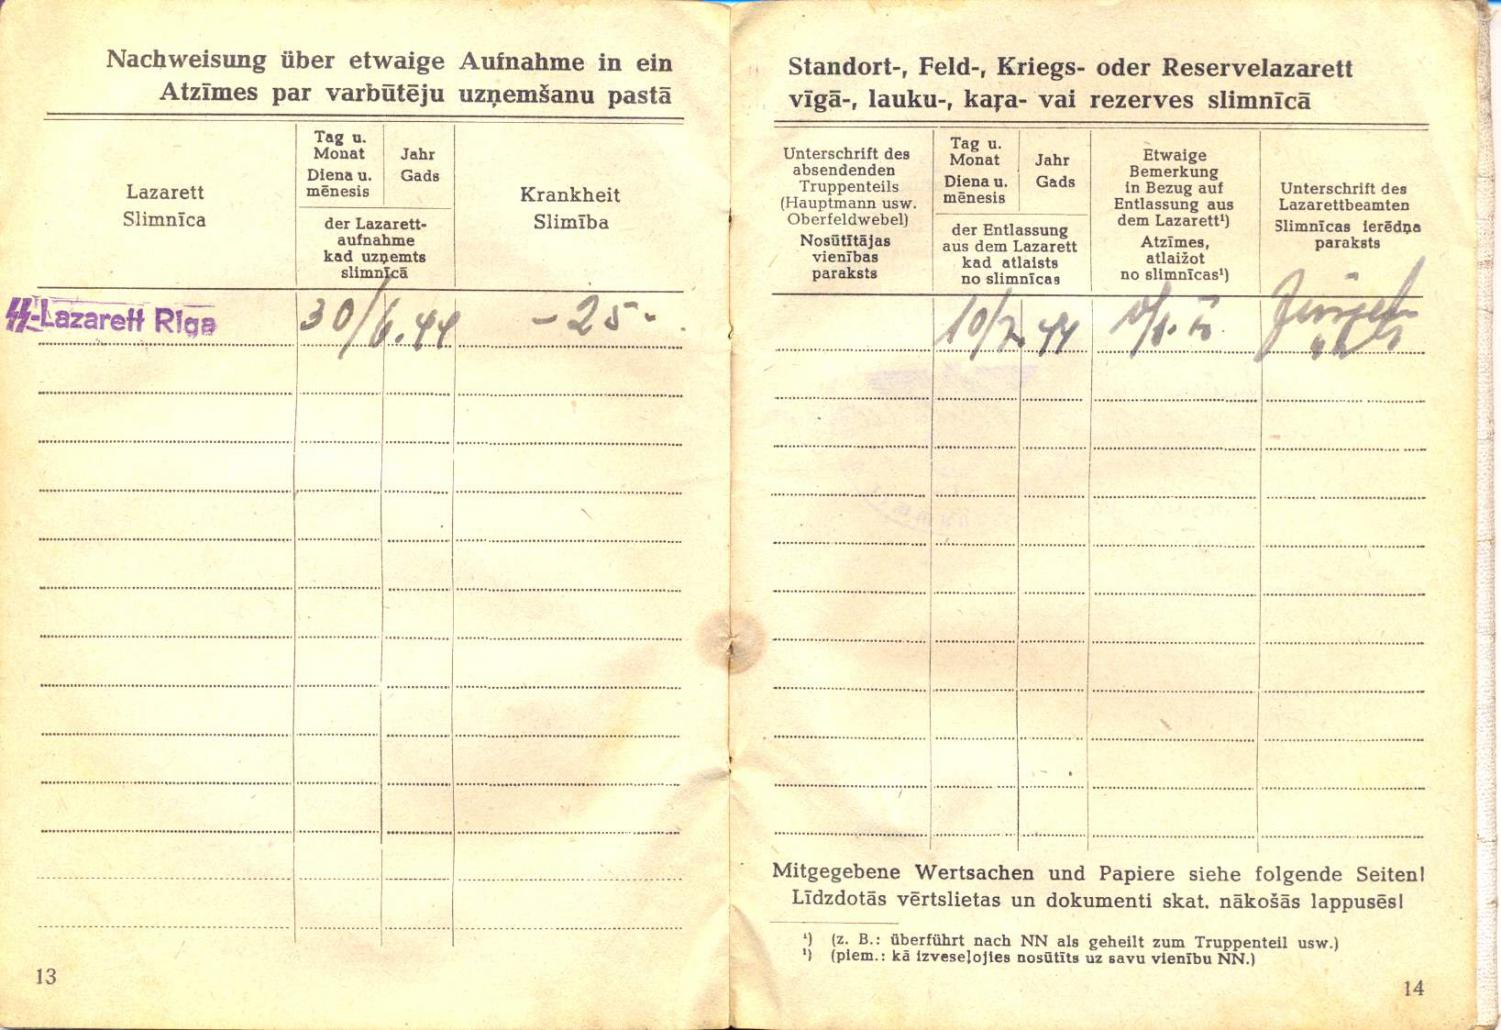 Nachweisung über etwaige Aufnahme in ein
Atzīmes par varbūtēju uzņemšanu pastā
Lazarett
Slimnīca
Tag u.
Monat
Diena u.
mēnesis
Jahr
Gads
der Lazarett-
aufnahme
kad uzņemts
slimnīcā
Krankheit
Slimība
SS-Lazarett Riga
30/6. 44
- 25 -
13
Standort-, Feld-, Kriegs- oder Reservelazarett
vīgā-, lauku-, kaŗa- vai rezerves slimnīcā
Unterschrift des
absendenden
Truppenteils
(Hauptmann usw.
Oberfeldwebel)
Nosūtītājas
vienības
paraksts
Tag u.
Monat
Diena u.
mēnesis
Jahr
Gads
der Entlassung
aus dem Lazarett
kad atlaists
no slimnīcas
Etwaige
Bemerkung
in Bezug auf
Entlassung aus
dem Lazarett¹)
Atzīmes,
atlaižot
no slimnīcas¹)
Unterschrift des
Lazarettbeamten
Slimnīcas ierēdņa
paraksts
10/7. 44
Mitgegebene Wertsachen und Papiere siehe folgende Seiten!
Līdzdotās vērtslietas un dokumenti skat. nākošās lappusēs!
¹) (z. B.: überführt nach NN als geheilt zum Truppenteil usw.)
¹) (piem.: kā izveseļojies nosūtīts uz savu vienību NN.)
14